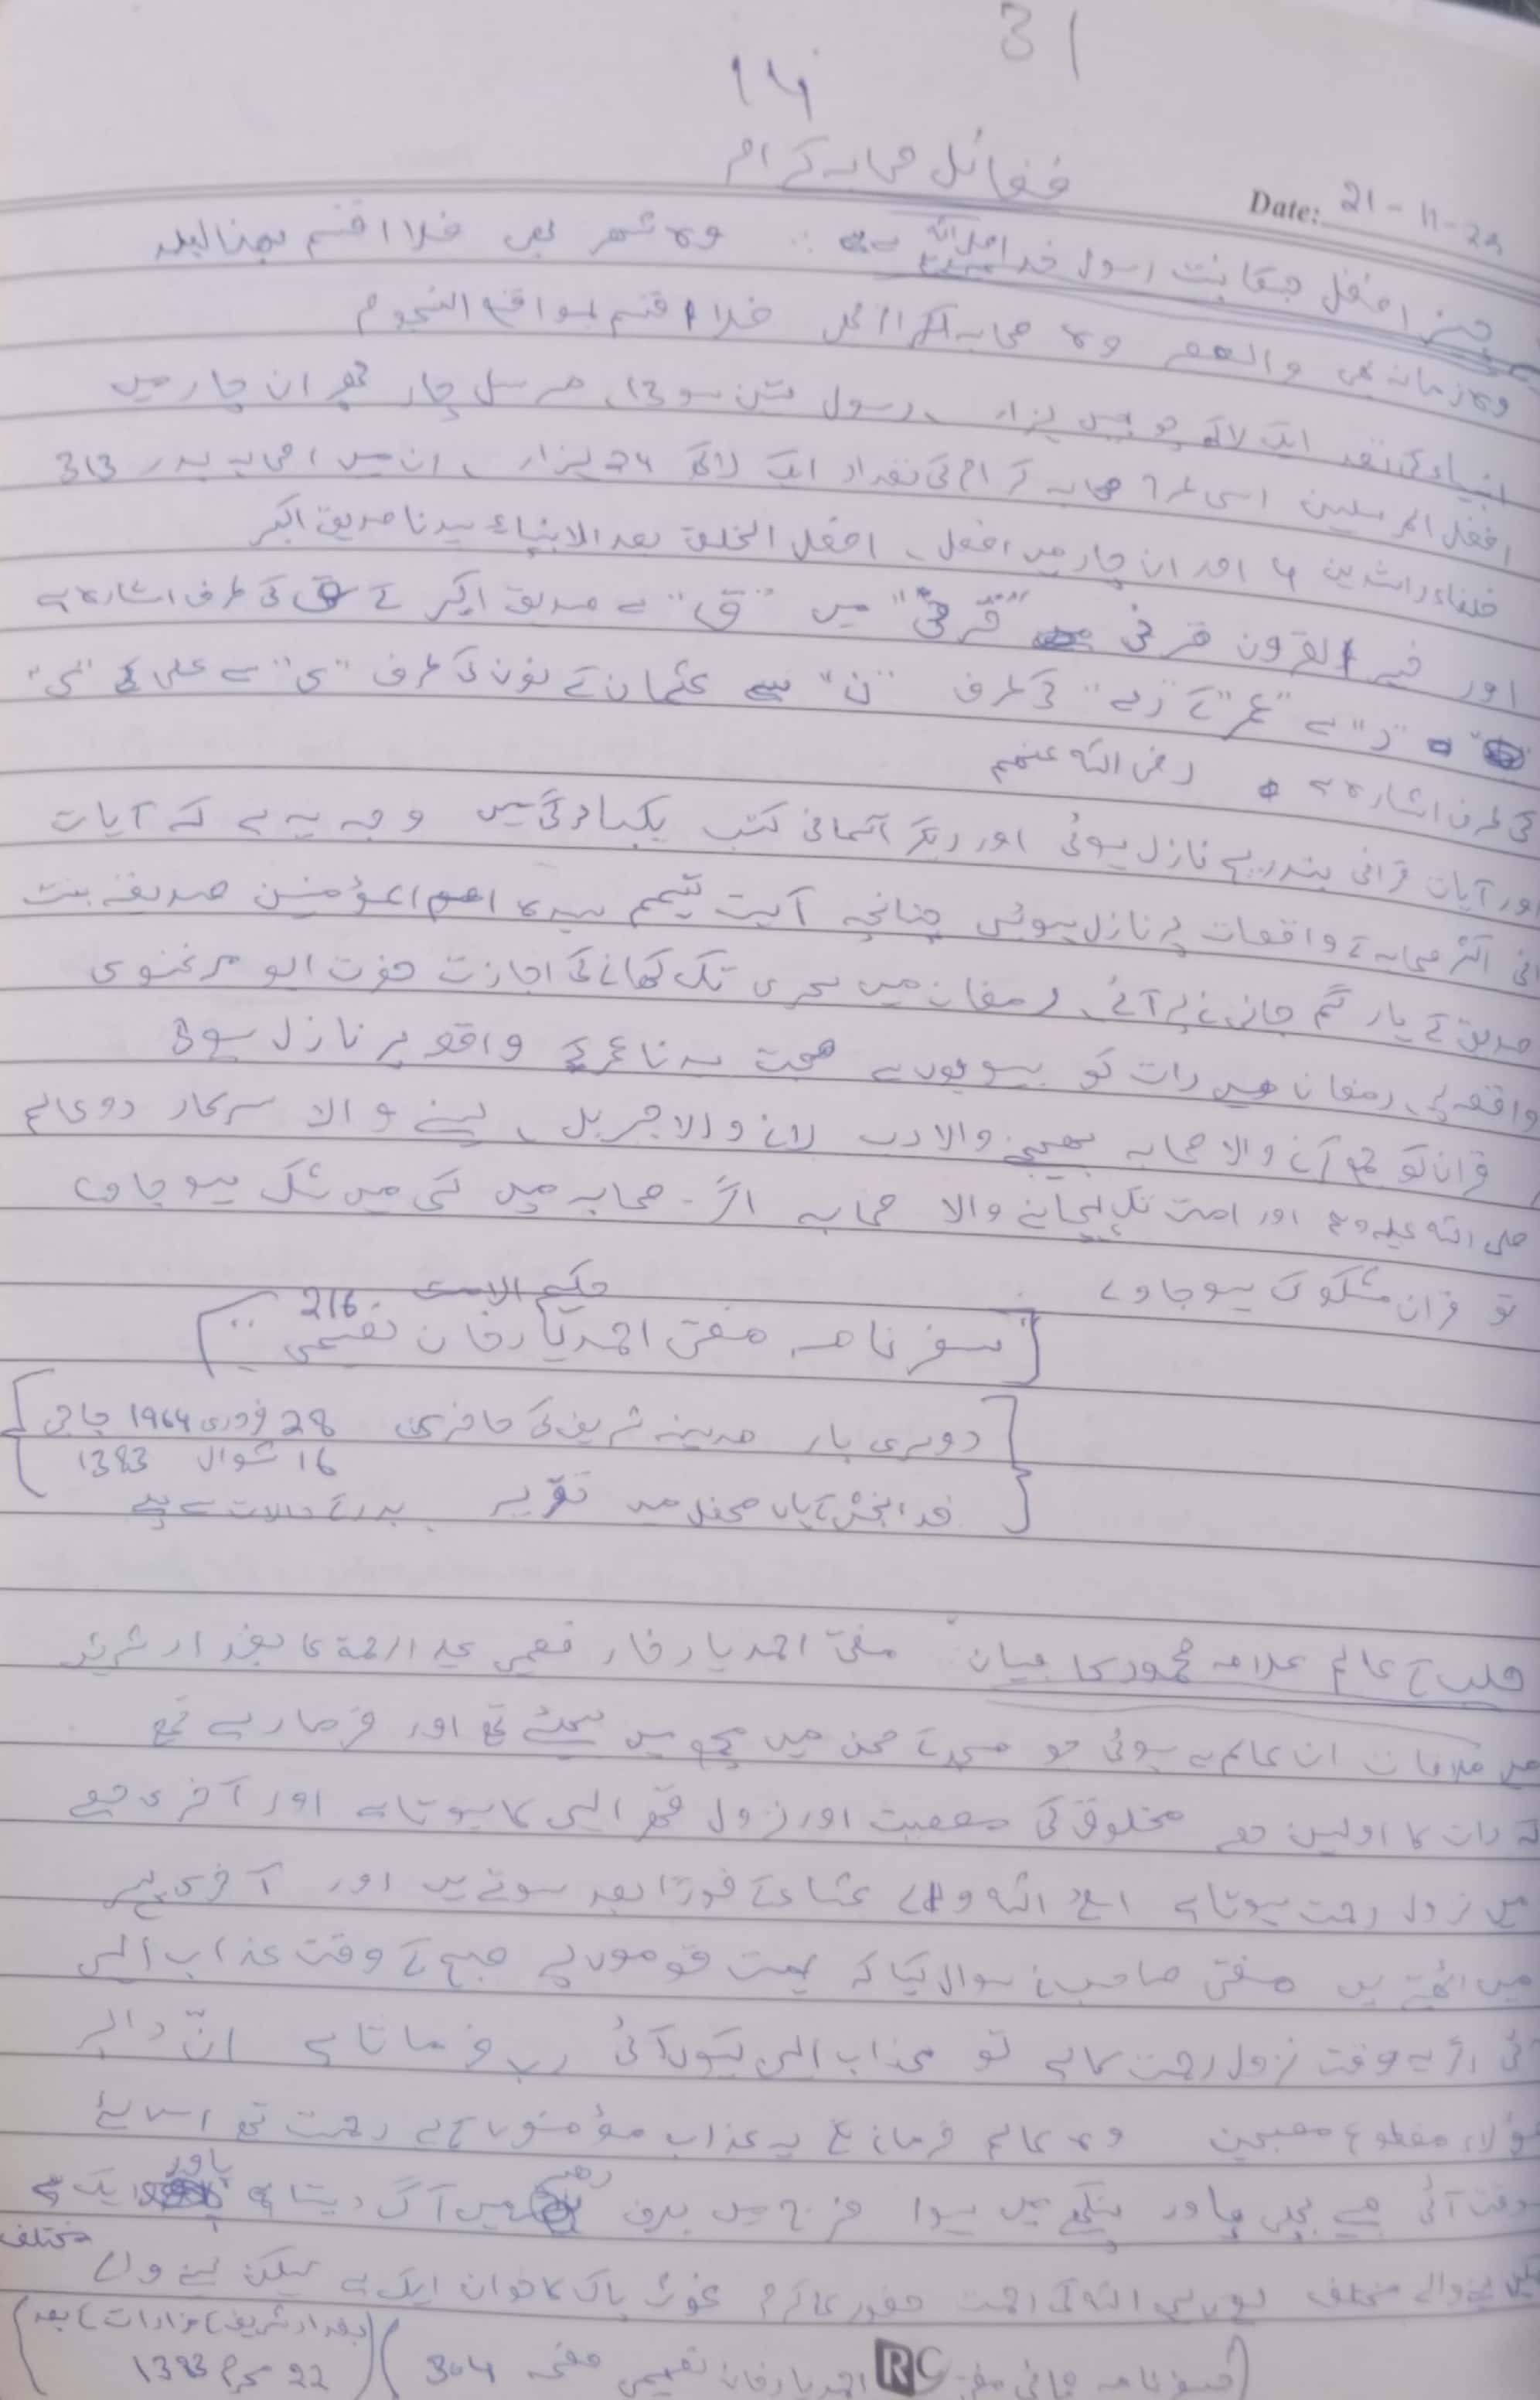 31
۱۴
فضائل صحابہ کرام
Date: 21-11-22
چیز افضل جتنا بنت رسول خدا ہے وہ شہر بھی فلا اقسم بھذا البلد
وہ زمانہ بھی والعصر وہ صحابہ کرام بھی فلا اقسم بمواقع النجوم
انبیاء کی تعد ایک لاکھ چوبیس ہزار، رسول تین سو 13، مرسل چار پھر ان چار میں
افضل المرسلین اسی طرح صحابہ کرام کی تعداد ایک لاکھ 24 ہزار، ان میں اصحابہ بدر 313
خلفاء راشدین ۴ اور ان چار میں افضل، افضل الخلق بعد الانبیاء سیدنا صدیق اکبر
اور خیر القرون قرنی "قرنی" میں "ق" سے صدیق اکبر کے ق کی طرف اشارہ ہے
"ر" سے "عمر" کے "ر" کی طرف "ن" سے عثمان کے نون کی طرف "ی" سے علی کے "ی"
کی طرف اشارہ ہے رضی اللہ عنھم
اور آیات قرانی بتدریج نازل ہوئی اور دیگر آسمانی کتب یکبارگی میں وجہ یہ ہے کہ آیات
اتی اکثر صحابہ کے واقعات پر نازل ہوئیں چنانچہ آیت تیمم سیدہ ام المؤمنین صدیقہ بنت
صدیق کے ہار گم جانی پر آئی، رمضان میں سحری تک کھانے کی اجازت حضرت ابو غنوی
واقعہ پر، رمضان میں رات کو بیویوں سے صحبت سیدنا عمر کے واقعہ پر نازل ہوئی
قران کو جمع آنے والا صحابہ بھیجنے والا رب لانے والا جبریل، لینے والا سرکار دو عالم
صلی اللہ علیہ وسلم اور امت تک پہچانے والا صحابہ اگر صحابہ میں کسی میں شک ہو جاوے
تو قران مشکوک ہو جاوے
حکیم الامت
[سفر نامہ مفتی احمد یار خان نعیمی 216]
[دوسری بار مدینہ شریف کی حاضری 28 فروری 1964
16 شوال 1383]
خدا بخش کے ہاں محفل میں تقریر بدر کے حالات سے پہلے
عالم علامہ محمود کا بیان: مفتی احمد یار خان نعیمی علیہ الرحمۃ کا بغداد شریف
میں ملاقات ان عالم سے ہوئی جو مسجد کے صحن میں بیٹھے تھے اور فرما رہے تھے
کہ رات کا اولین حصہ مخلوق کی معصیت اور نزول قھر الہی کا ہوتا ہے اور آخری حصے
میں نزول رحمت ہوتا ہے اللہ والے عشاء کے فورًا بعد سوتے ہیں اور آخری پہر
میں اٹھتے ہیں مفتی صاحب نے سوال کیا کہ بہت قوموں پر صبح کے وقت عذاب الہی
آئی اگر یہ وقت نزول رحمت کا ہے تو عذاب الہی کیوں آئی رب فرماتا ہے انّ دابر
ھؤلاء مقطوع مصبحین وہ عالم فرمانے لگے یہ عذاب مؤمنوں کے لیے رحمت تھی اس لئے
وقت آئی جیسے بجلی پاور پنکھے میں ہوا فرج میں برف میں آگ دیتا ہے پاور ایک ہے
لینے والے مختلف یوں ہی اللہ کی رحمت حضور کا کرم غوث پاک کا خوان ایک ہے لیکن لینے والے مختلف
(سفر نامہ مفتی احمد یار خان نعیمی صفحہ 304) (بغداد شریف، مزارات، بعد
22 محرم 1383)
RC